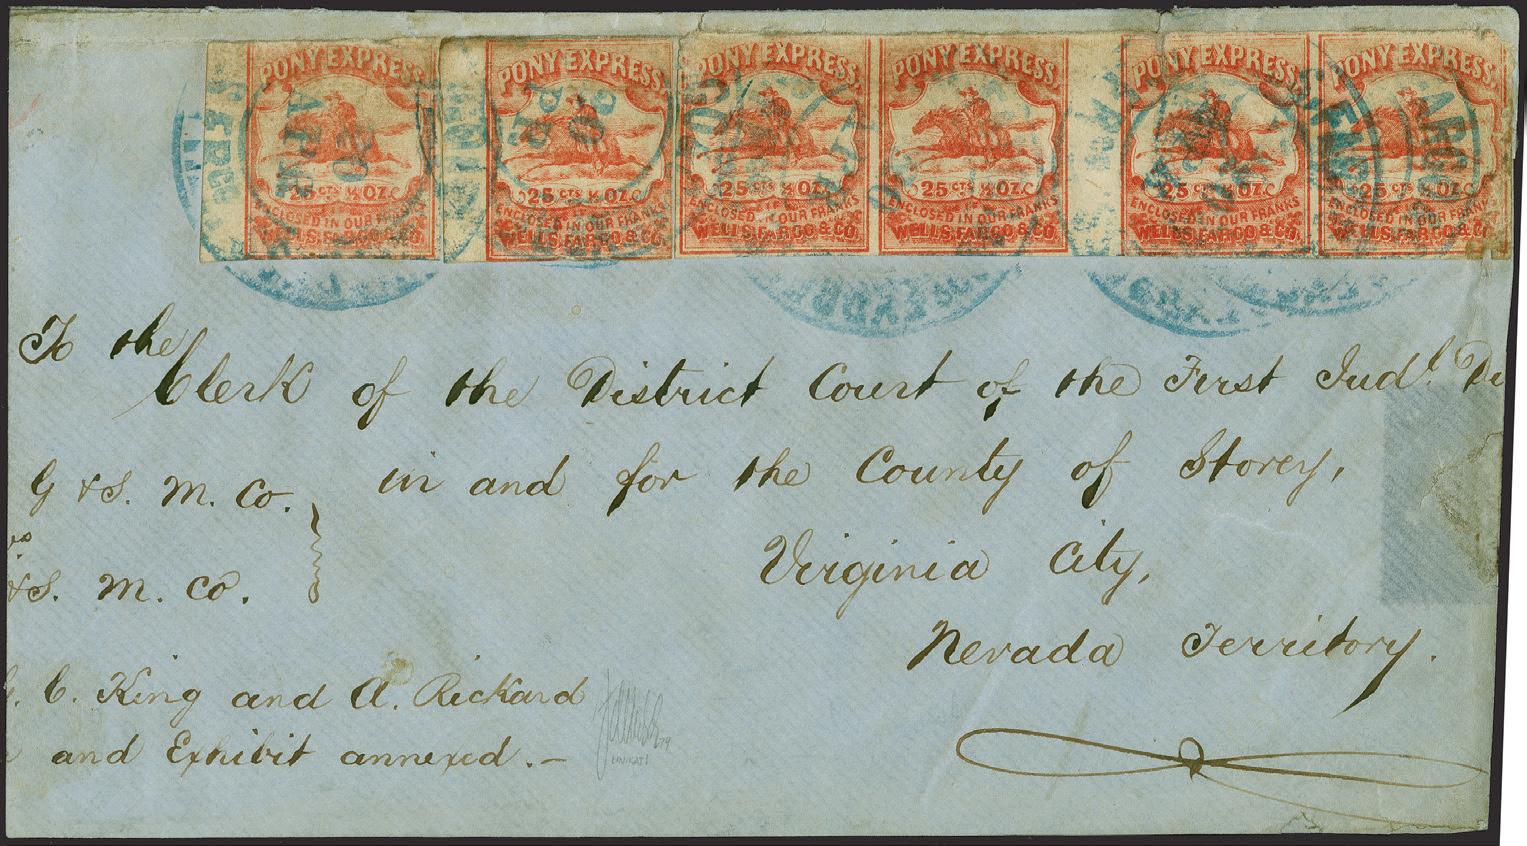 PONY EXPRESS. PONY EXPRESS. PONY EXPRESS. PONY EXPRESS. PONY EXPRESS. PONY EXPRESS.
25 CTS ½ OZ. 25 CTS ½ OZ. 25 CTS ½ OZ. 25 CTS ½ OZ. 25 CTS ½ OZ. 25 CTS ½ OZ.
ENCLOSED IN OUR FRANKS ENCLOSED IN OUR FRANKS ENCLOSED IN OUR FRANKS ENCLOSED IN OUR FRANKS ENCLOSED IN OUR FRANKS ENCLOSED IN OUR FRANKS
WELLS, FARGO & CO. WELLS, FARGO & CO. WELLS, FARGO & CO. WELLS, FARGO & CO. WELLS, FARGO & CO. WELLS, FARGO & CO.
To the
Clerk of the District Court of the First Judl. Di
in and for the County of Storey,
Virginia City,
Nevada Territory.
G & S. M. Co.
vs
& S. M. Co.
C. King and A. Rickard
and Exhibit annexed. -